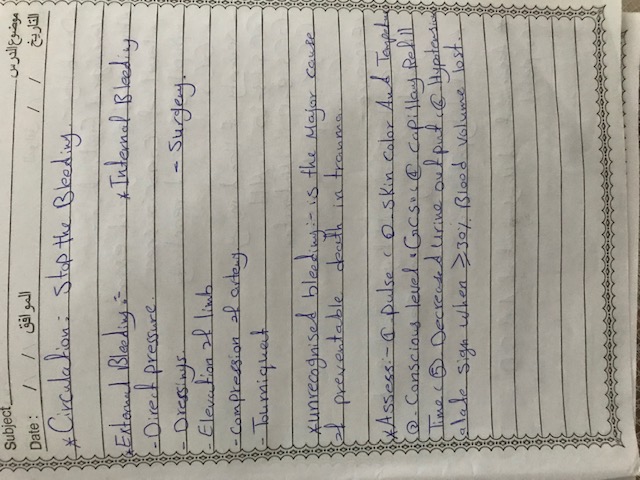 Subject موضوع الدرس
Date : / / الموافق / / التاريخ
* Circulation : Stop the Bleeding.
* External Bleeding :- * Internal Bleeding
- Direct pressure.
- Dressings. - Surgery.
- Elevation of limb
- Compression of artery
- Tourniquet
* unrecognised bleeding :- is the Major cause
of preventable death in trauma.
* Assess :- ① Pulse ② Skin color And
Conscious level Capillary Refill
Time ⑤ Decreased Urine output ⑥ Hypotension
late sign when ≥ 30% Blood volume lost.